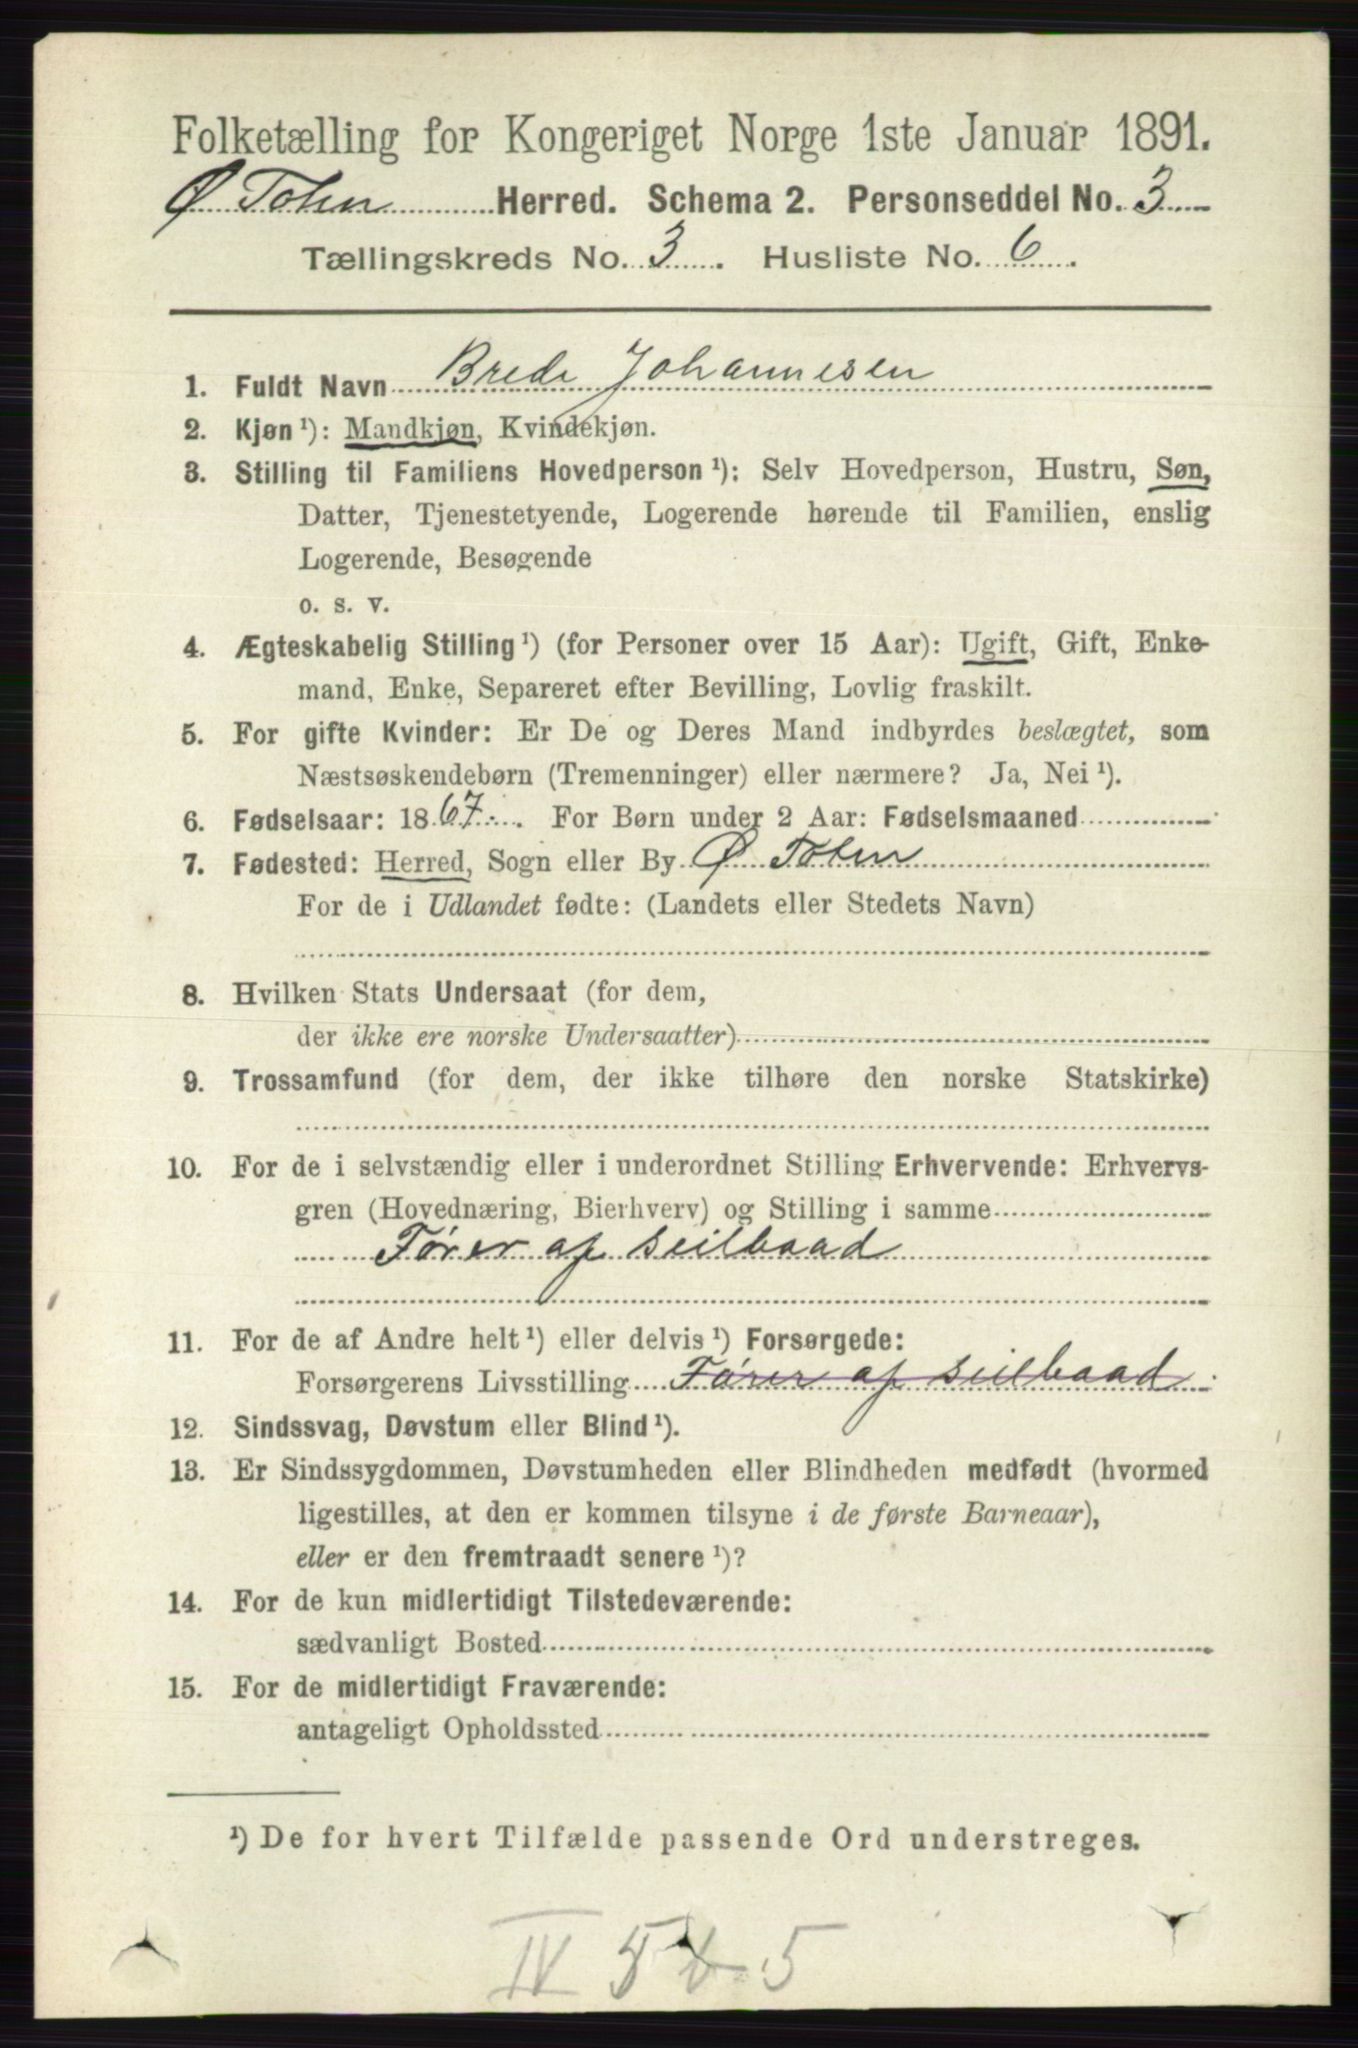 Folketælling for Kongeriget Norge 1ste Januar 1891.
Ø Toten Herred. Schema 2. Personseddel No. 3
Tællingskreds No. 3. Husliste No. 6.
1. Fuldt Navn Brede Johannesen
2. Kjøn ¹): Mandkjøn, Kvindekjøn.
3. Stilling til Familiens Hovedperson ¹): Selv Hovedperson, Hustru, Søn,
Datter, Tjenestetyende, Logerende hørende til Familien, enslig
Logerende, Besøgende
o. s. v.
4. Ægteskabelig Stilling ¹) (for Personer over 15 Aar): Ugift, Gift, Enke-
mand, Enke, Separeret efter Bevilling, Lovlig fraskilt.
5. For gifte Kvinder: Er De og Deres Mand indbyrdes beslægtet, som
Næstsøskendebørn (Tremenninger) eller nærmere? Ja, Nei ¹).
6. Fødselsaar: 1867. For Børn under 2 Aar: Fødselsmaaned
7. Fødested: Herred, Sogn eller By Ø Toten
For de i Udlandet fødte: (Landets eller Stedets Navn)
8. Hvilken Stats Undersaat (for dem,
der ikke ere norske Undersaatter)
9. Trossamfund (for dem, der ikke tilhøre den norske Statskirke)
10. For de i selvstændig eller i underordnet Stilling Erhvervende: Erhvervs-
gren (Hovednæring, Bierhverv) og Stilling i samme
Fører af seilbaad
11. For de af Andre helt ¹) eller delvis ¹) Forsørgede:
Forsørgerens Livsstilling Fører af seilbaad
12. Sindssvag, Døvstum eller Blind ¹).
13. Er Sindssygdommen, Døvstumheden eller Blindheden medfødt (hvormed
ligestilles, at den er kommen tilsyne i de første Barneaar),
eller er den fremtraadt senere ¹)?
14. For de kun midlertidigt Tilstedeværende:
sædvanligt Bosted
15. For de midlertidigt Fraværende:
antageligt Opholdssted
¹) De for hvert Tilfælde passende Ord understreges.
IV 5